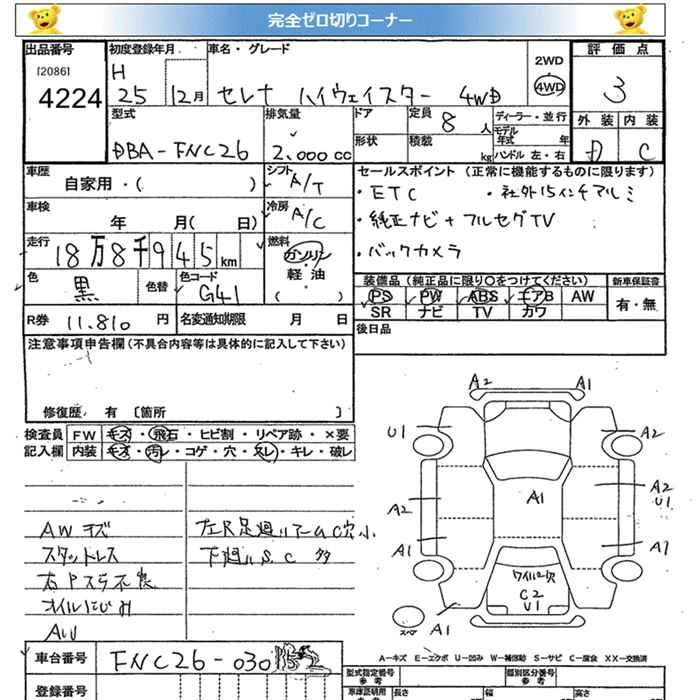 完全ゼロ切りコーナー
出品番号 初度登録年月 車名・グレード 評価点
[2086] H 2WD
4224 25 12月 セレナ ハイウェイスター 4WD 4WD 3
型式 排気量 ドア 定員 8 人 ディーラー・並行 外装 内装
DBA-FNC26 2,000 cc 形状 積載 kg モデル年式 年 D C
ハンドル 左・右
車歴 シフト セールスポイント (正常に機能するものに限ります)
自家用・( ) A/T ・ETC ・社外15インチアルミ
車検 冷房 ・純正ナビ+フルセグTV
年 月( 日) A/C ・バックカメラ
走行 18万8千945km 燃料 ガソリン・軽油 ( )
色 黒 色替 色コード G41
装備品 (純正品に限り○をつけてください) 新車保証書
PS PW ABS エアB AW 有・無
SR ナビ TV カワ
R券 11,810 円 名変通知期限 月 日 後日品
注意事項申告欄 (不具合内容等は具体的に記入して下さい)
修復歴 有 [箇所 ]
検査員 FW キズ・飛石・ヒビ割・リペア跡・×要
記入欄 内装 キズ・汚レ・コゲ・穴・スレ・キレ・破レ
AWキズ 左R足廻リアームC穴小
スタットレス 下廻リS.C 多
右Pスラ不良
オイルにじみ
AW
A2 A1
U1 A2
A1
A2 A2 U1
A1 A1
ワイパー穴
C2
U1
スペア A1
A-キズ E-エクボ U-凹み W-補修跡 S-サビ C-腐食 XX-交換済
車台番号 FNC26-030
登録番号
型式指定番号 参考 類別区分番号 参考
車庫証明用 参考 長さ 幅 高さ